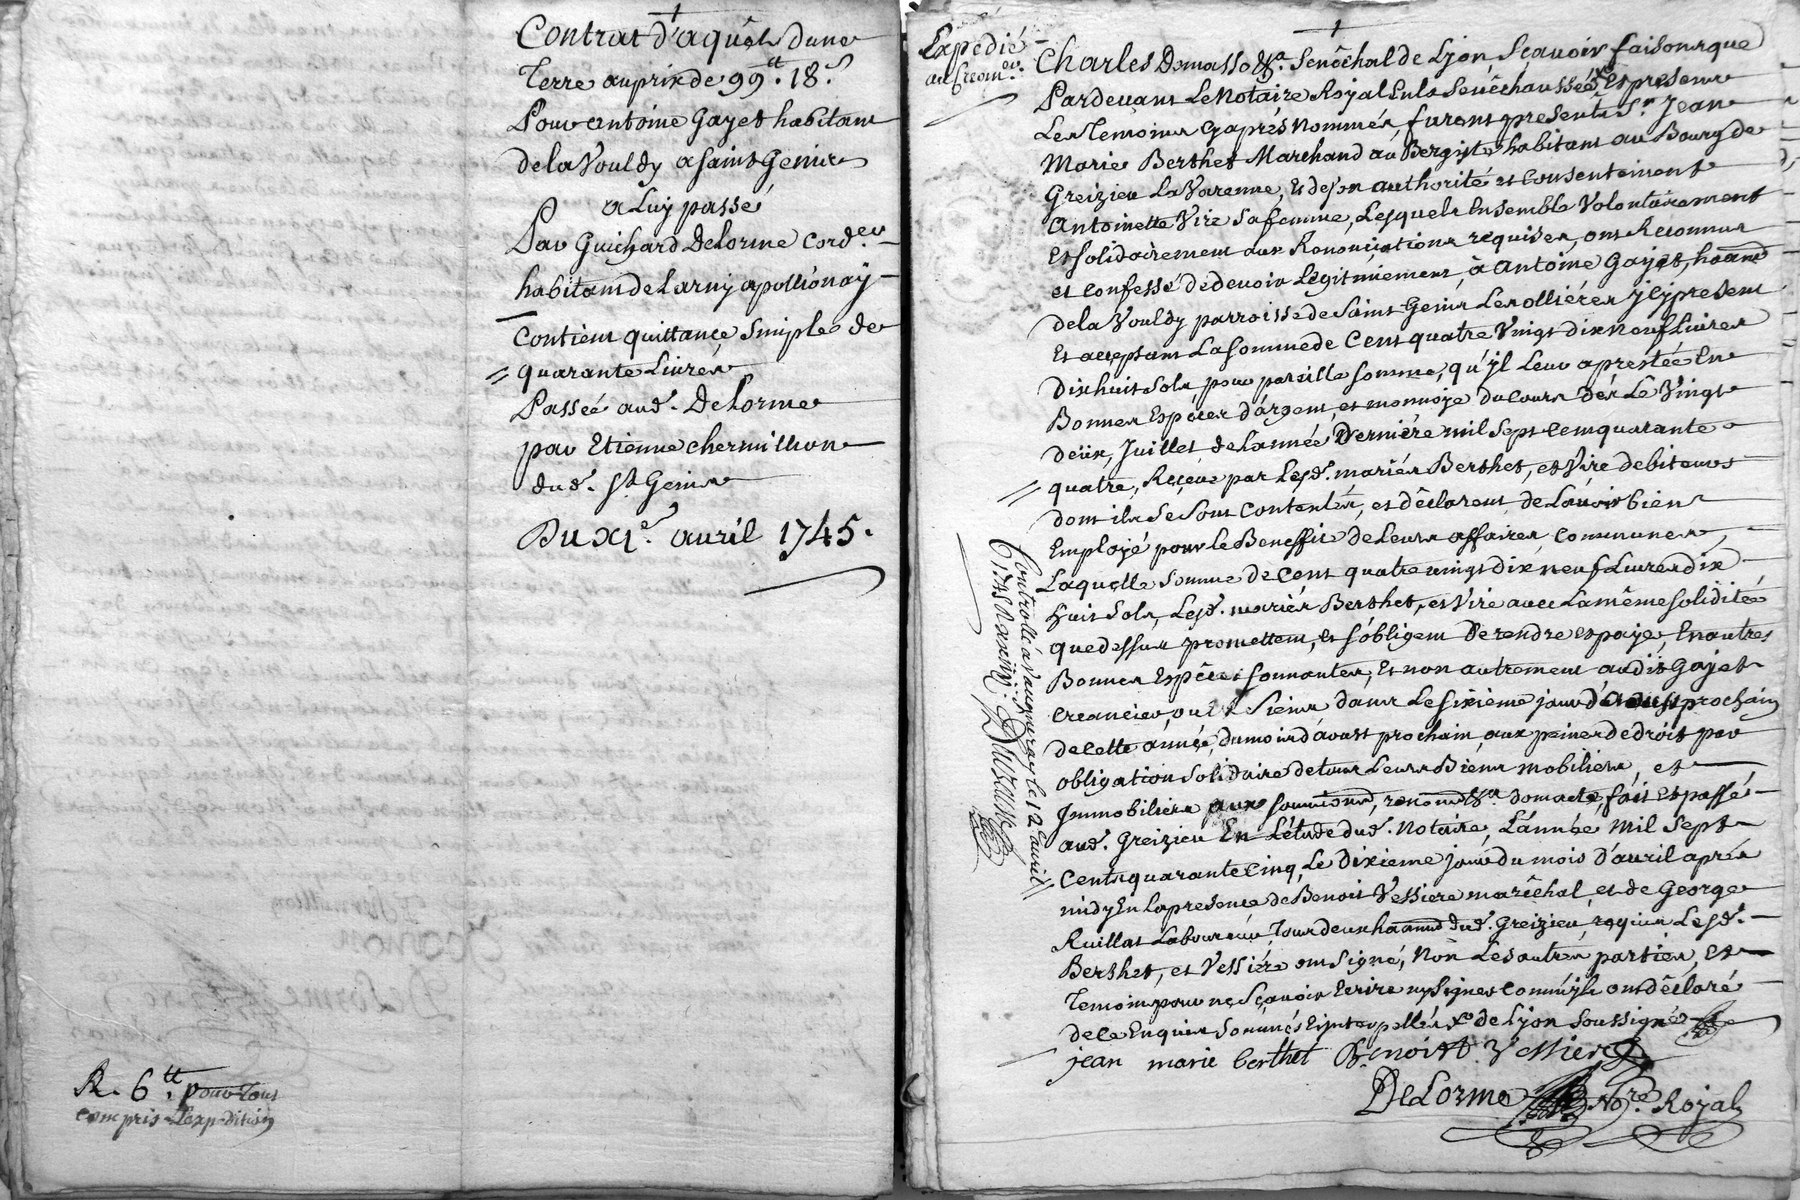 Contrat d'aquets dune
Terre auprix de 99tt. 18s
Pour antoine Gayet habitant
dela Vouldy a saint Genis
a Luy passé
Par Guichard Delorme Cord.er
habitant de Larny apollionay
Contient quittance simple de
quarante Livres
Passée aud. Delorme
par Etienne chermillion
dud. St. Genis
Du XIe. avril 1745.
R. 6tt. pour tout
compris Lexpedition
Expedié
au Crean.er
Charles Demasso &a. Senéchal de Lyon, Scavoir faisons que
Pardevant Le Notaire Royal En la Senéchaussée, Et presence
Les Temoins Cyaprés Nommés, furent presents Sr. Jean
Marie Berthet Marchand au Bergiste habitant au Bourg de
Greizieu La Varenne, Et de son authorité et Consentement
Antoinette Vire Sa femme, Lesquels Ensemble Volontairement
Et solidairement aux Renonciations requises, ont Reconnu
et Confessé de devoir Legitimement à Antoine Gayet, habitant
dela Vouldy parroisse de Saint Genis Lesollières, jcy present
Et acceptant La somme de Cent quatre Vingt dix neuf Livres
Dixhuit sols, pour pareille somme, qu'jl Leur a prestée En
Bonnes Espéces d'argent, et monnoye du cours dés Le Vingt
deux, Juillet de Lannée Derniére mil sept Cent quarante
quatre, Reçeue par Lesd. mariés Berthet, et Vire debiteurs
dont ils se sont Contentés, et déclarent de L'avoir bien
Employé pour le Beneffice de Leurs affaires Communes,
Laquelle somme de Cent quatre vingt dix neuf Livres dix
huit sols, Lesd. mariés Berthet, et Vire avec La même solidité
que dessus promettent, et s'obligent De rendre et payer En autres
Bonnes Espéces sonnantes, Et non autrement audit Gayet
Creancier, ou Siens dans Le sixieme jour d'aoust prochain
de cette année, du mois d'aoust prochain aux peines de droit par
obligation solidaire de tous Leurs Biens mobiliers, et
Jmmobiliers aux soumissions, renon.ons &a. dont acte, fait Et passé
aud. Greizieu En L'étude dud. Notaire, L'année Mil Sept
Cents quarante Cinq, Le dixieme jour du mois D'avril aprés
midy En La presence de Benoit Vessiere maréchal, et de George
Ruillat Laboureur, Tous deux habitants dud. Greizieu, requis Lesd.
Berthet, et Vessiére ont signé, Non Les autres parties, Et
Temoin pour ne Sçavoir Ecrire ny Signer Comm'jls ont déclaré
de ce Enquis Sommés Et jnterpellés de Lyon Soussigné
jean marie berthet Benoist Vessiere
DeLorme Nore. Royal
Controllé à Vaugneray le 12e avril
1745